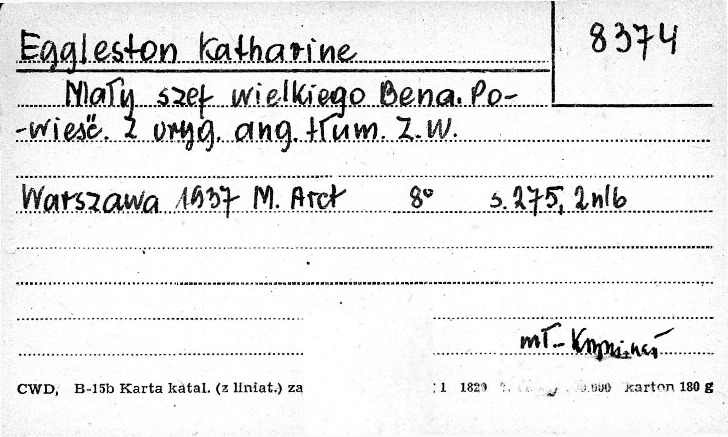 Eggleston Katharine
8374
Mały szef wielkiego Bena. Po-
-wieść. Z oryg. ang. tłum. Z.W.
Warszawa 1937 M. Arct 8° s. 275, 2nlb
mł-
CWD, B-15b Karta katal. (z liniat.) za 1 1829 karton 180 g